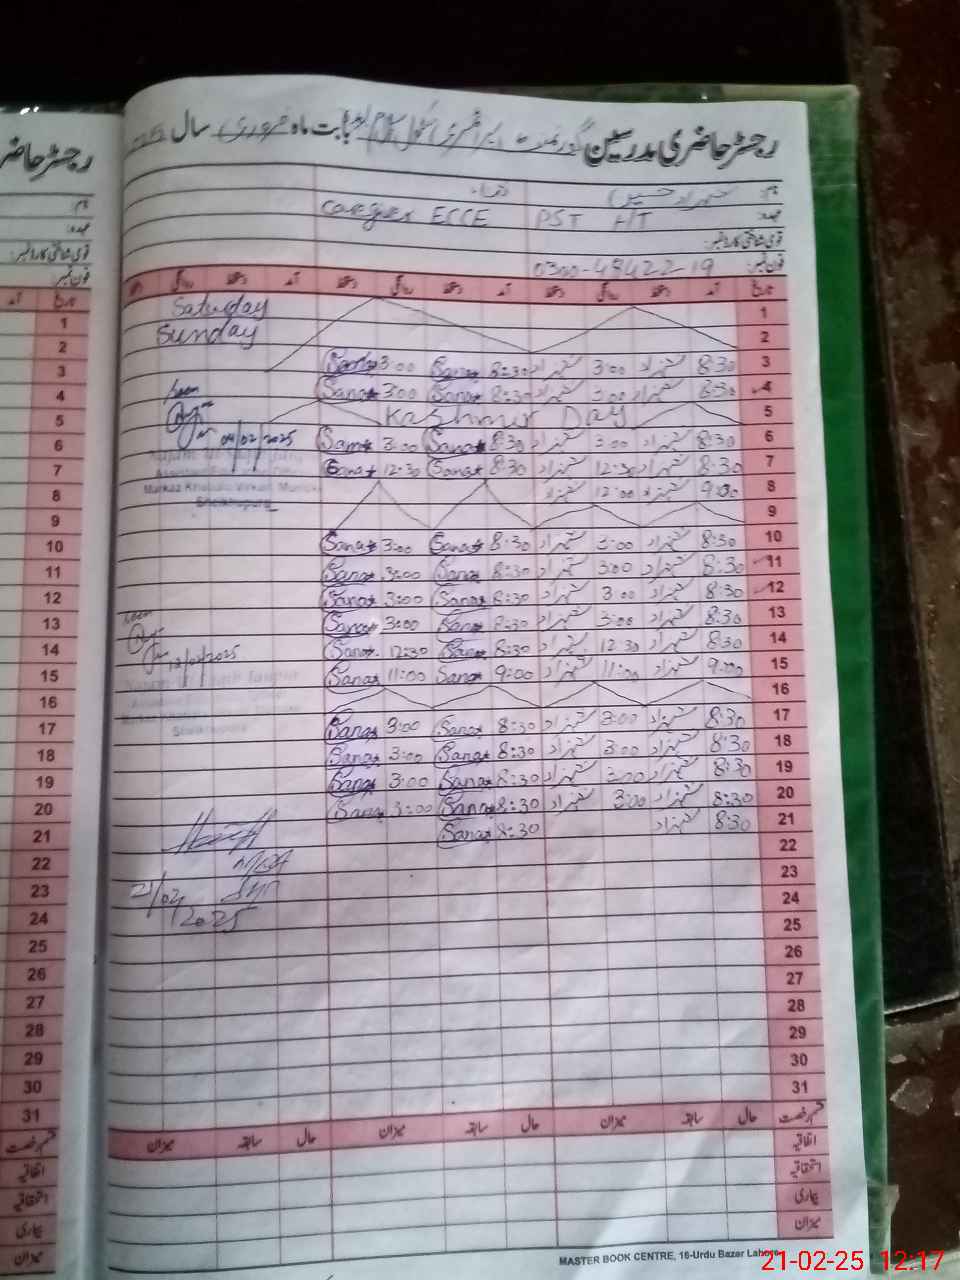 رجسٹر حاضری مدرسین گورنمنٹ پرائمری سکول بابت ماہ فروری سال
نام: شہزاد حسین ثناء
عہدہ: PST HT Caregiver ECCE
قومی شناختی کارڈ نمبر:
فون نمبر: 0300-4842219
تاریخ آمد دستخط روانگی دستخط آمد دستخط روانگی دستخط آمد روانگی دستخط
1 Saturday
2 Sunday
3 8:30 شہزاد 3:00 شہزاد 8:30 Sana 3:00 Sana
4 8:30 شہزاد 3:00 شہزاد 8:30 Sana 3:00 Sana
5 Kashmir Day
04/02/2025
6 8:30 شہزاد 3:00 شہزاد 8:30 Sana 3:00 Sana
7 8:30 شہزاد 12:30 شہزاد 8:30 Sana 12:30 Sana
8 9:00 شہزاد 12:00 شہزاد
Markaz
Sheikhupura
9
10 8:30 شہزاد 3:00 شہزاد 8:30 Sana 3:00 Sana
11 8:30 شہزاد 3:00 شہزاد 8:30 Sana 3:00 Sana
12 8:30 شہزاد 3:00 شہزاد 8:30 Sana 3:00 Sana
13 8:30 شہزاد 3:00 شہزاد 8:30 Sana 3:00 Sana
14 8:30 شہزاد 12:30 شہزاد 8:30 Sana 12:30 Sana
12/02/2025
15 9:00 شہزاد 11:00 شہزاد 9:00 Sana 11:00 Sana
16
17 8:30 شہزاد 3:00 شہزاد 8:30 Sana 3:00 Sana
18 8:30 شہزاد 3:00 شہزاد 8:30 Sana 3:00 Sana
19 8:30 شہزاد 3:00 شہزاد 8:30 Sana 3:00 Sana
20 8:30 شہزاد 3:00 شہزاد 8:30 Sana 3:00 Sana
21 8:30 شہزاد 8:30 Sana
22
23
21/02/2025
24
25
26
27
28
29
30
31
قسم رخصت حال سابقہ میزان حال سابقہ میزان حال سابقہ میزان
اتفاقیہ
استحقاقیہ
بیماری
میزان
MASTER BOOK CENTRE, 16-Urdu Bazar Lahore
رجسٹر حاضر
نام:
عہدہ:
قومی شناختی کارڈ نمبر:
فون نمبر:
تاریخ آمد
1
2
3
4
5
6
7
8
9
10
11
12
13
14
15
16
17
18
19
20
21
22
23
24
25
26
27
28
29
30
31
قسم رخصت
اتفاقیہ
استحقاقیہ
بیماری
میزان
21-02-25 12:17